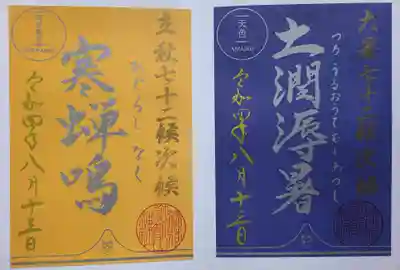 立秋七十二候次候
ひぐらしなく
寒蝉鳴
令和四年八月十三日
天色
AMAIRO
大暑七十二候次候
つちうるおうてむしあつし
土潤溽暑
令和四年八月